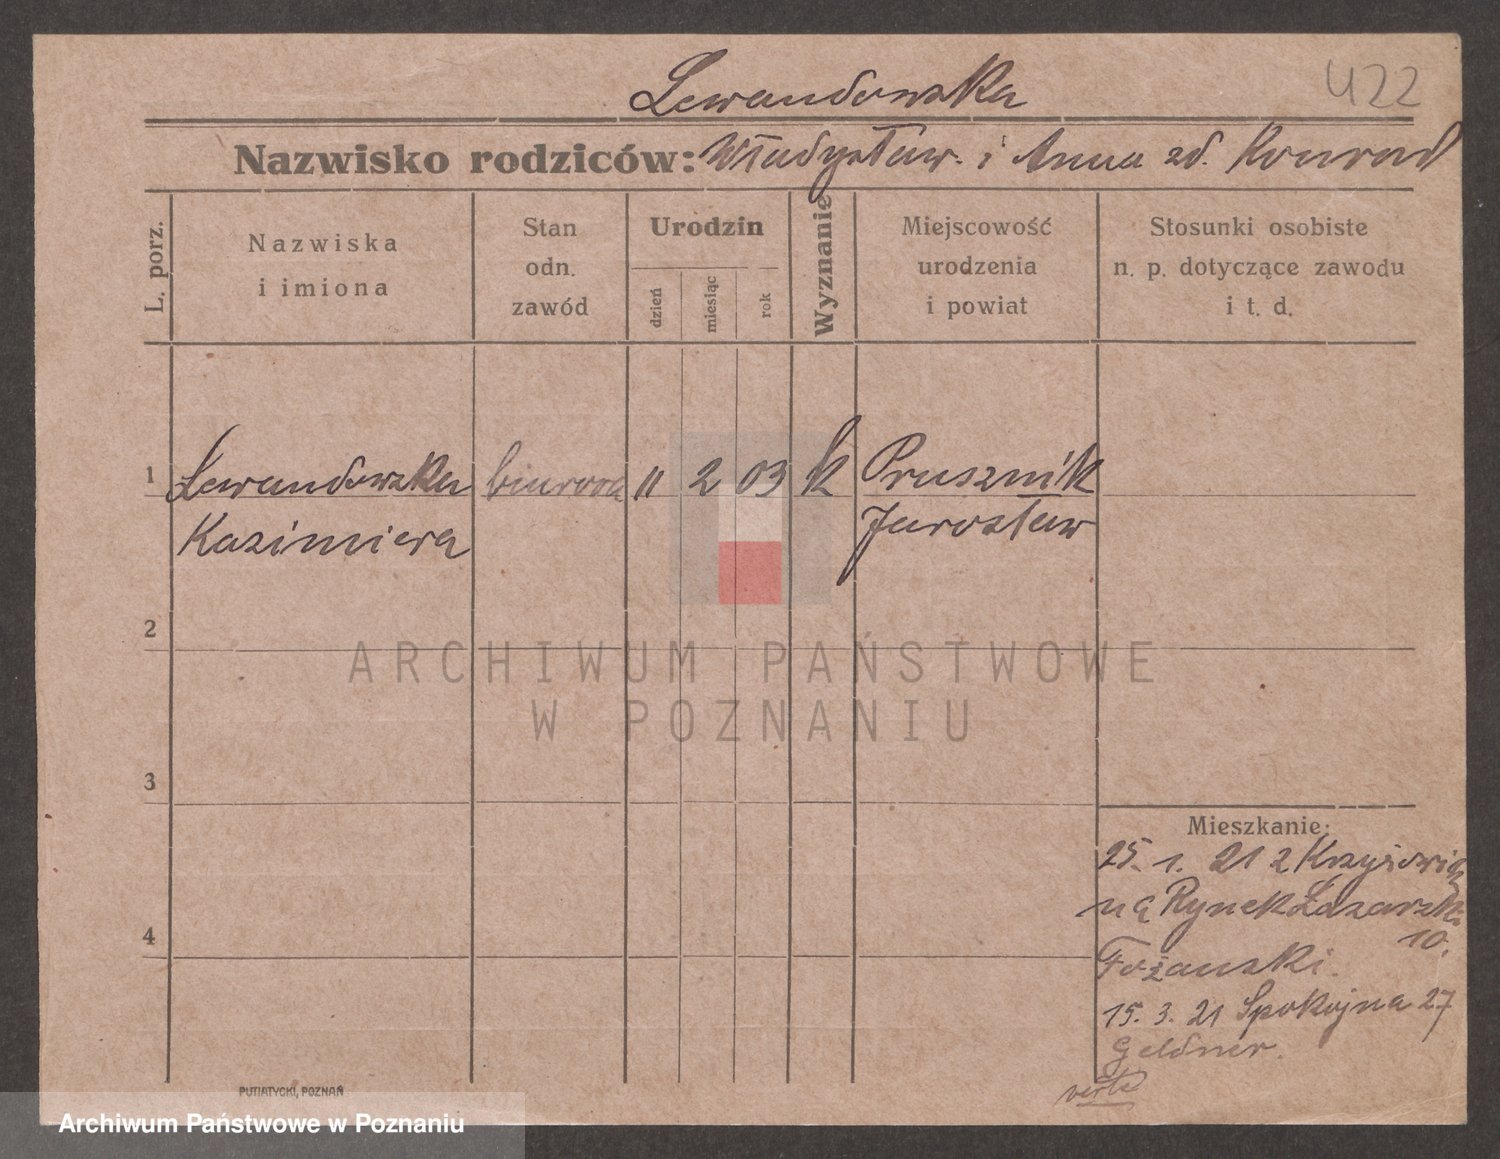 Lewandowska
422
Nazwisko rodziców: Władysław. i Anna zd. Konrad
L. porz.
Nazwiska
i imiona
Stan
odn.
zawód
Urodzin
dzień
miesiąc
rok
Wyznanie
Miejscowość
urodzenia
i powiat
Stosunki osobiste
n. p. dotyczące zawodu
i t. d.
1
Lewandowska
Kazimiera
biurowa
11
2
03
k
Prusznik
Jarosław
2
ARCHIWUM PAŃSTWOWE
W POZNANIU
3
4
Mieszkanie:
25. 1. 21 z
na Rynek Łazarski
10.
15. 3. 21 Spokojna 27
Geldner.
verte
PUTIATYCKI, POZNAŃ
Archiwum Państwowe w Poznaniu